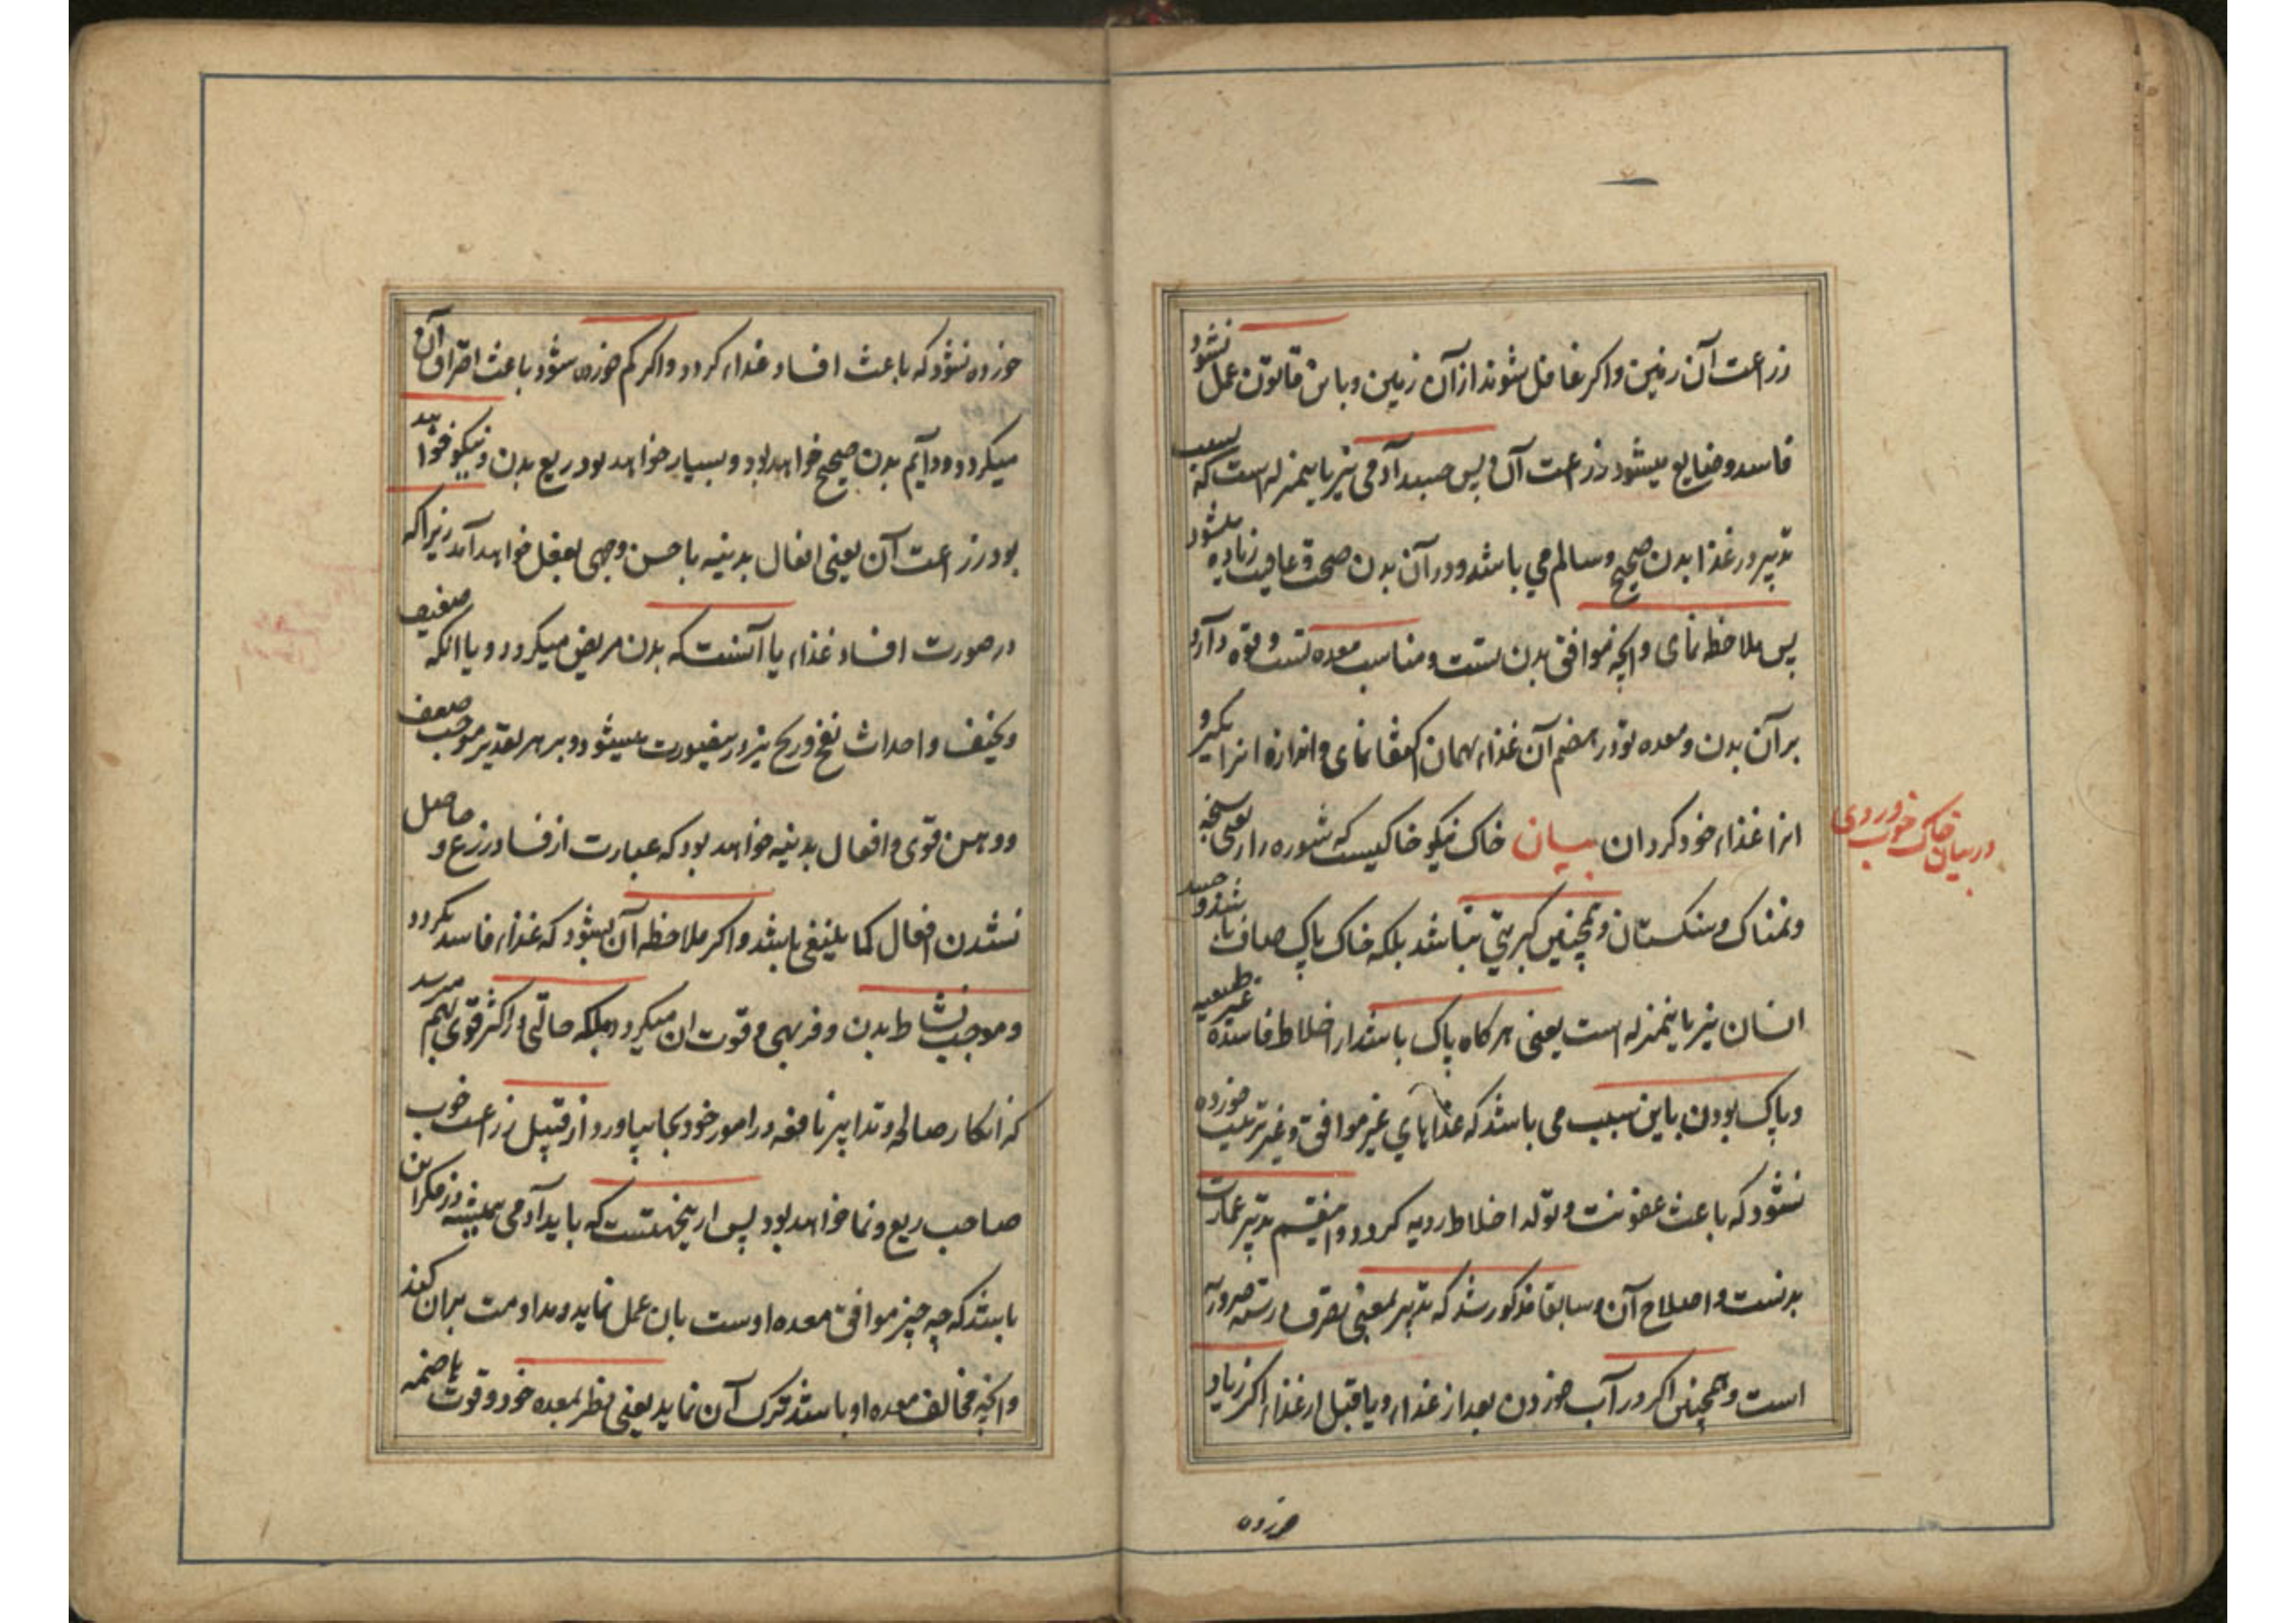 زراعت آن زمین واکر غافل شوند از آن زمین و باین قانون عمل نشود
فاسد و ضایع میشود زراعت آن پس جسد آدمی نیز باینمنزله است که بسبب
تدبیر در غذا بدن صحیح و سالم می باشد و در آن بدن صحت و عافیت زیاده میشود
پس ملاحظه نمای وانچه موافق بدن تست و مناسب معده تست و قوه دارد
بر آن بدن و معده تو در هضم آن غذاء بهمان اکتفا نمای و اندازه انرا بکیر و
انرا غذاء خود کردان بیان خاک نیکو خاکیست که شوره زار یعنی سبخه
ونمناک و سنکستان و همچنین کبریتی نباشد بلکه خاک پاک صاف باشد و جسد
انسان نیز باینمنزله است یعنی هر کاه پاک باشد از اخلاط فاسده غیر طبیعیه
و پاک بودن باین سبب می باشد که غذاهای غیر موافق و غیر ترتیب خورده
نشود که باعث عفونت و تولد اخلاط ردیه کردد و اینقسم تدبیر عمارت
بدنست و اصلاح آن و سابقا مذکور شد که تدبیر بمعنی تصرف در سته ضروریه
است و همچنین اکر در آب خوردن بعد از غذاء و یا قبل از غذاء اکر زیاد
خوردن
در بیان خاک خوب
خورده نشود که باعث افساد غذاء کردد و اکر کم خورده شود باعث احتراق آن
میکردد و دایم بدن صحیح خواهد بود و بسیار خواهد بود ریع بدن و نیکو خواهد
بود زراعت آن یعنی افعال بدنیه باحسن وجهی بفعل خواهد آمد زیرا که
در صورت افساد غذاء یا آنست که بدن مریض میکردد و یا انکه ضعیف
و نحیف و احداث نفخ و ریح نیز درینصورت میشود و بر هر تقدیر موجب ضعف
و وهن قوی و افعال بدنیه خواهد بود که عبارت از فساد زرع و حاصل
نشدن افعال کما ینبغی باشد و اکر ملاحظه آن بشود که غذاء فاسد نکردد
و موجب نشاط بدن و فربهی و قوت ان میکردد بلکه حالتی در اکثر قوی بهم میرسد
که افکار صالحه و تدابیر نافعه در امور خود بجا بیاورد از قبیل زراعت خوب
صاحب ریع و نما خواهد بود پس ازینجهتست که باید آدمی همیشه در فکر این
باشد که چه چیز موافق معده اوست بان عمل نماید و مداومت بران کند
وانچه مخالف معده او باشد ترک آن نماید یعنی نظر بمعده خود و قوت هاضمه